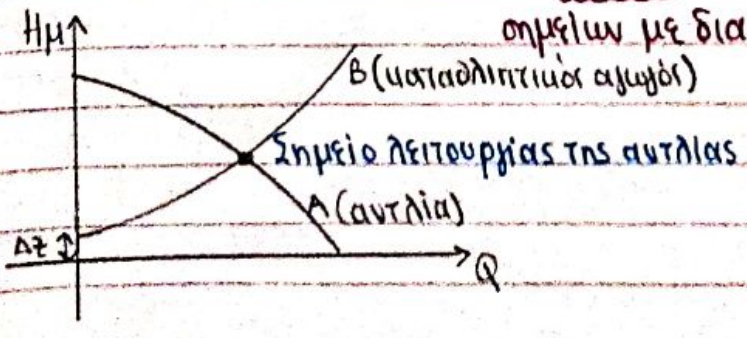 Ημ
σημείων με δια
Β (καταθλιπτικός αγωγός)
Σημείο λειτουργίας της αντλίας
Α (αντλία)
Δz
Q